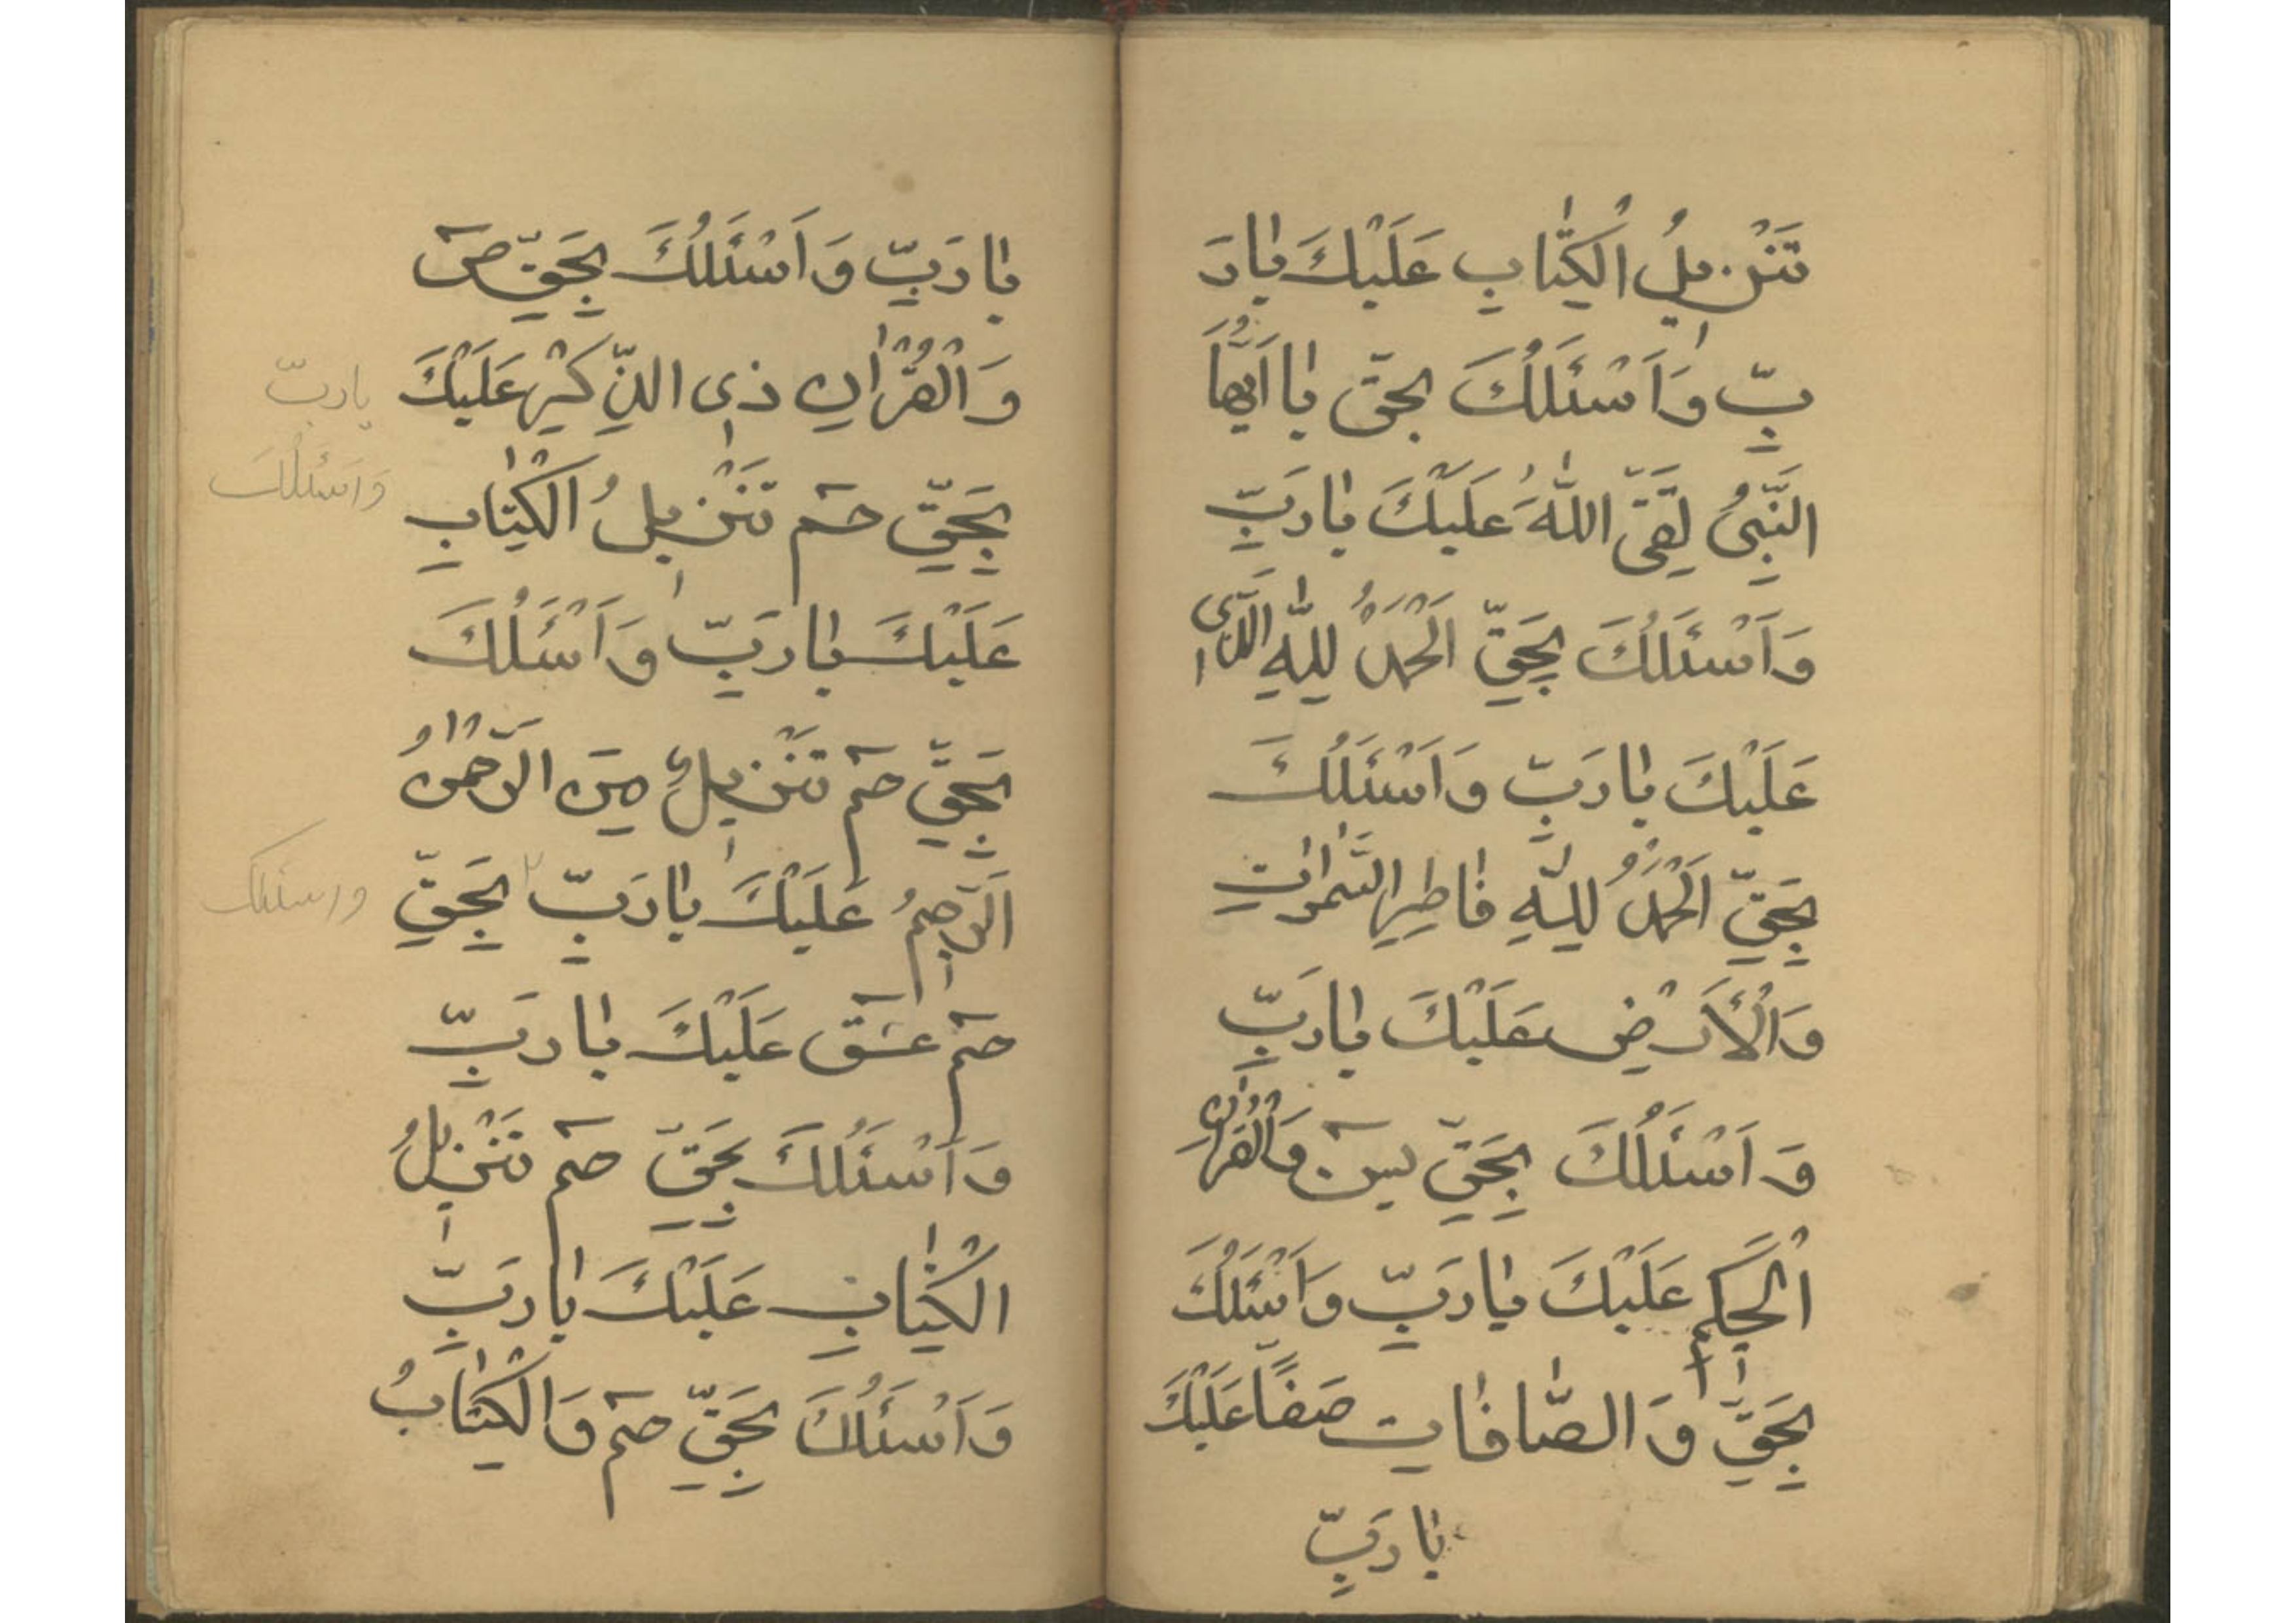 تَنْزٖيلُ الْكِتٰابِ عَلَيْكَ يٰارَ
بِّ وَاَسْئَلُكَ بِحَقِّ يٰا اَيُّهَا
النَّبِىُّ اتَّقِ اللّٰهَ عَلَيْكَ يٰارَبِّ
وَاَسْئَلُكَ بِحَقِّ اَلْحَمْدُ لِلّٰهِ الَّذٖى
عَلَيْكَ يٰارَبِّ وَاَسْئَلُكَ
بِحَقِّ اَلْحَمْدُ لِلّٰهِ فٰاطِرِ السَّمٰوٰاتِ
وَالْاَرْضِ عَلَيْكَ يٰارَبِّ
وَاَسْئَلُكَ بِحَقِّ يٓسٓ وَالْقُرْاٰنِ
الْحَكٖيمِ عَلَيْكَ يٰارَبِّ وَاَسْئَلُكَ
بِحَقِّ وَالصّٰافّٰاتِ صَفًّا عَلَيْكَ
يٰارَبِّ
يٰارَبِّ وَاَسْئَلُكَ بِحَقِّ صٓ
وَالْقُرْاٰنِ ذِى الذِّكْرِ عَلَيْكَ
يارب
وَاَسْئَلُكَ
بِحَقِّ حٰمٓ تَنْزٖيلُ الْكِتٰابِ
عَلَيْكَ يٰارَبِّ وَاَسْئَلُكَ
بِحَقِّ حٰمٓ تَنْزٖيلٌ مِنَ الرَّحْمٰنُ
الرَّحٖيمُ عَلَيْكَ يٰارَبِّ بِحَقِّ
واسئلك
حٰمٓ عٓسٓقٓ عَلَيْكَ يٰارَبِّ
وَاَسْئَلُكَ بِحَقِّ حٰمٓ تَنْزٖيلُ
الْكِتٰابِ عَلَيْكَ يٰارَبِّ
وَاَسْئَلُكَ بِحَقِّ حٰمٓ وَالْكِتٰابُ